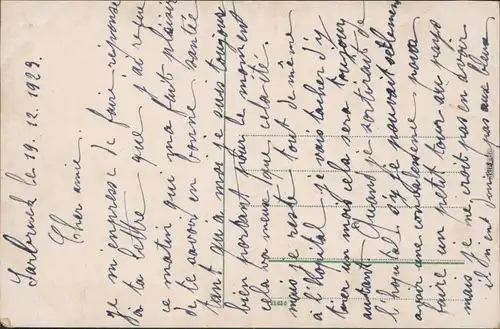 Sarbruck le 19.12.1923.
Cher amie.
Je m'empresse de faire réponse
à ta lettre que j'ai reçu
ce matin qui m'a fait plaisir
de te savoir en bonne santée
tant qu'a moi je suis toujours
bien portant pour le moment
cela va mieux que
mais je reste tout de même
à l'hopital je vais tacher d'y
tirer un mois cela sera toujour
autant. Quand je sortirait de
l'hopital si je pouvait seulement
avoir une convalessense pour
faire un petit tour au pays
mais je ne croit pas en avoir
il n'en pas aux bleus